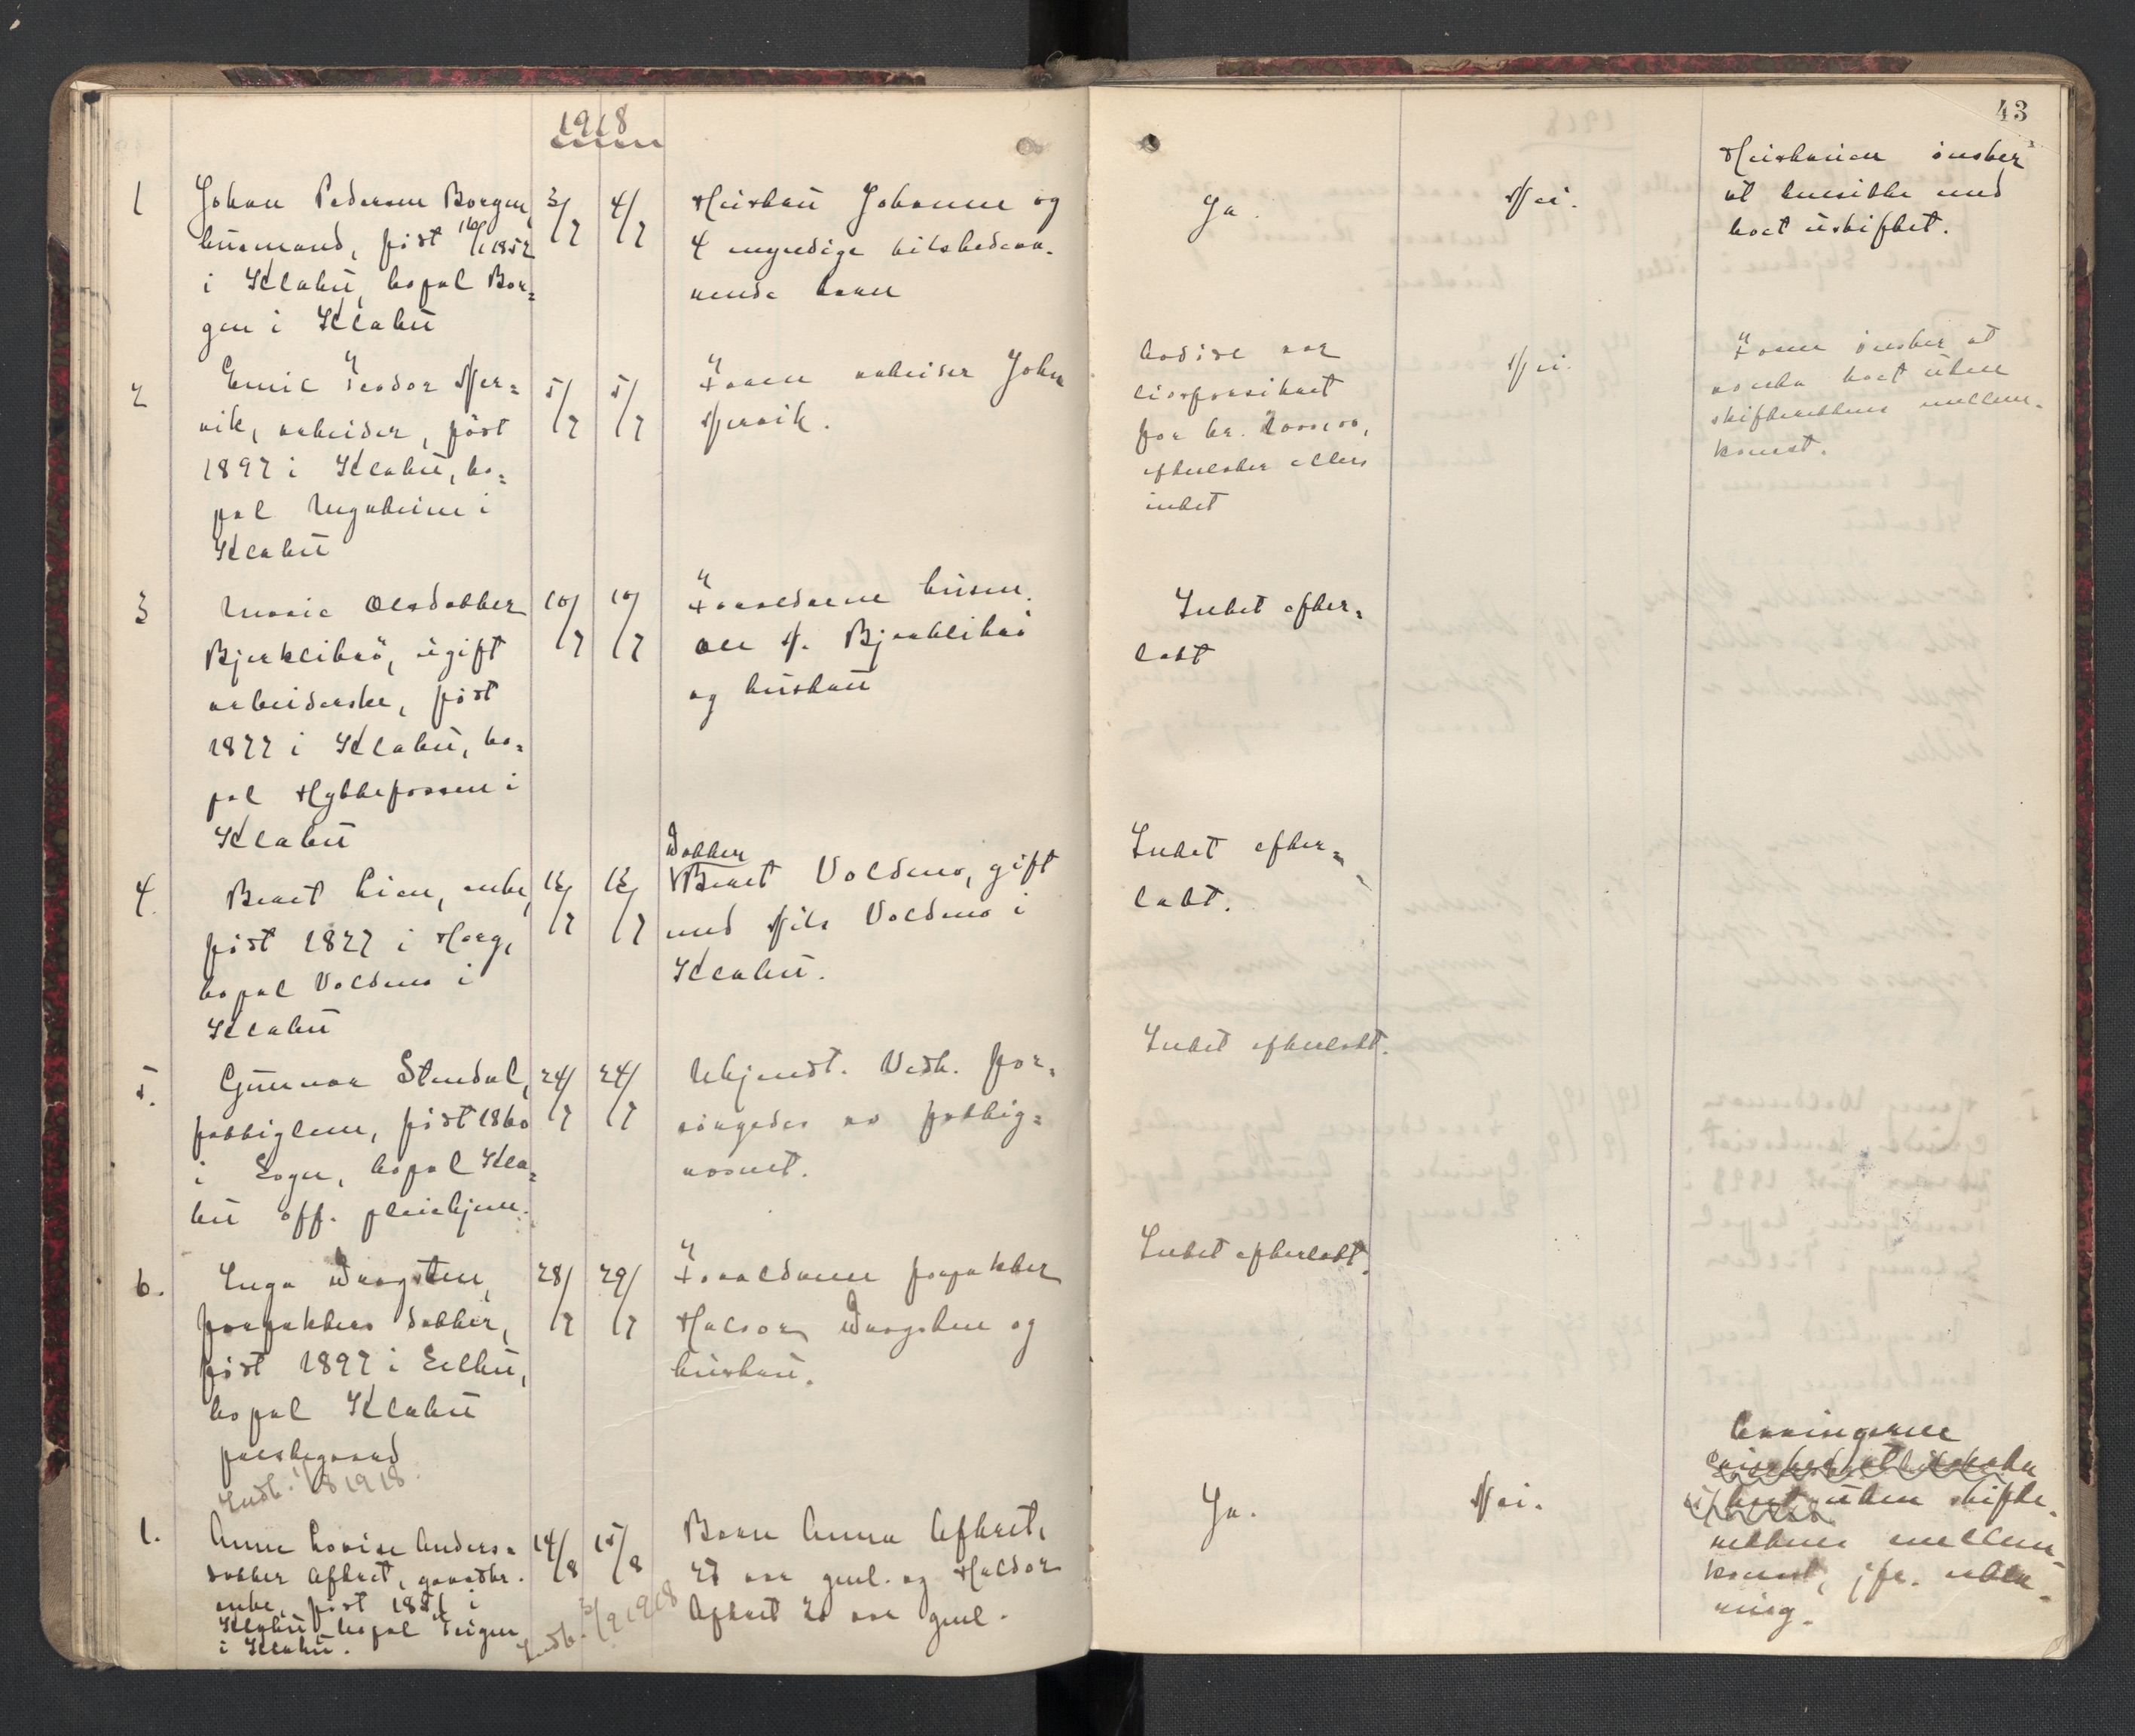 1918
43
1
Johan Pedersen Borgen,
husmand, født 16/1 1852
i Klæbu, bopæl Bor=
gen i Klæbu
3/7
4/7
Hustru Johanne og
4 myndige tilstedevæ-
rende barn
Ja.
Nei.
Hustruen ønsker
at hensitte med
boet uskiftet.
2
Emil Teodor Ner=
vik, arbeider, født
1897 i Klæbu, bo=
pæl Nygaheim i
Klæbu
5/7
5/7
Faren arbeider John
Nervik.
Avdøde var
livsforsikret
for kr. 2000,00,
efterlater ellers
intet
Nei.
Faren ønsker at
overta boet uten
skifterettens mellem-
komst.
3
Marie Olsdatter
Bjerklibrø, ugift
arbeiderske, født
1877 i Klæbu, bo=
pæl Hyttefossen i
Klæbu
10/7
10/7
Forældrene husm.
Ole N. Bjerklibrø
og hustru
Intet efter=
latt
4.
Beret Lien, enke,
født 1827 i Horg,
bopæl Voldmo i
Klæbu
12/7
12/7
Datter
Beret Voldmo, gift
med Nils Voldmo i
Klæbu.
Intet efter=
latt.
5.
Gunnar Stendal,
fattiglem, født 1860
i Sogn, bopæl Klæ=
bu off. pleiehjem.
24/7
24/7
Ukjendt. Vedk. for=
sørgedes av fattig=
væsnet.
Intet efterlatt.
6.
Inga Dragsten,
forpakters datter,
født 1897 i Selbu,
bopæl Klæbu
prestegaard
28/7
29/7
Forældrene forpakter
Halvor Dragsten og
hustru.
Intet efterlatt.
Indb. 1/8 1918.
1.
Anne Lovise Anders=
datter Aftret, gaardbr.
enke, født 1851 i
Klæbu, bopæl Teigen
i Klæbu.
14/8
15/8
Barn Anna Aftret,
27 aar gml. og Haldor
Aftret 20 aar gml.
Indb. 3/9 1918
Ja.
Nei.
Arvingerne
boet uten skifte-
rettens mellem-
komst, jfr. erklæ-
ring.